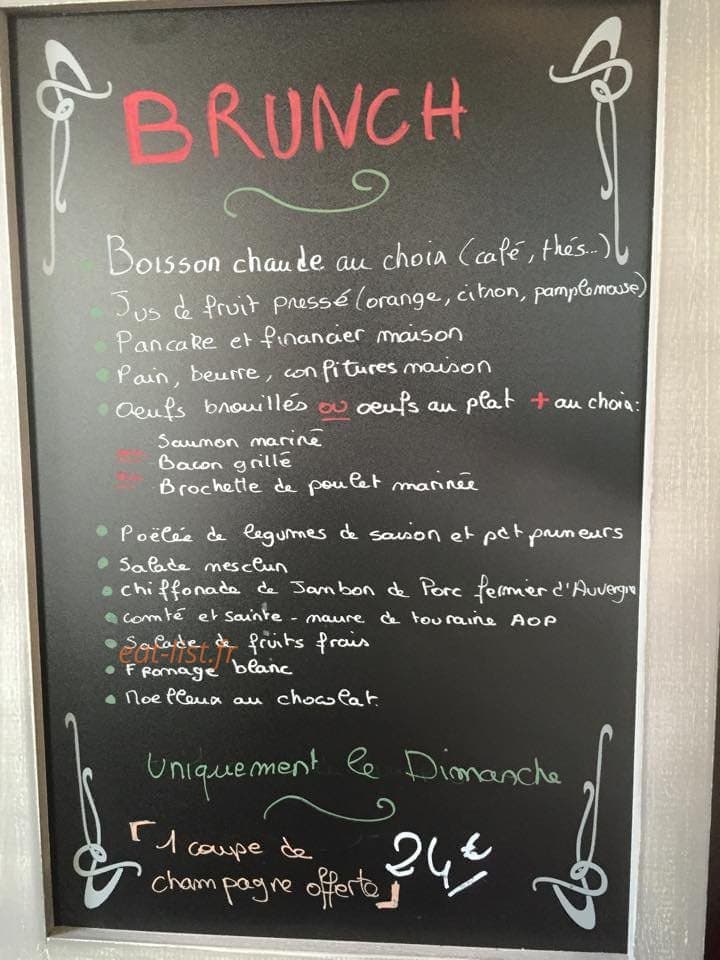 BRUNCH
Boisson chaude au choix (café, thés...)
Jus de fruit pressé (orange, citron, pamplemouse)
Pancake et financier maison
Pain, beurre, confitures maison
Oeufs brouillés ou oeufs au plat + au choix:
Saumon mariné
ou Bacon grillé
ou Brochette de poulet marinée
Poëlée de légumes de saison et pdt primeurs
Salade mesclun
Chiffonade de Jambon de Porc fermier d'Auvergne
Comté et Sainte-maure de touraine AOP
Salade de fruits frais
eat-list.fr
Fromage blanc
Moelleux au chocolat.
Uniquement le Dimanche
1 coupe de
champagne offerte
24€